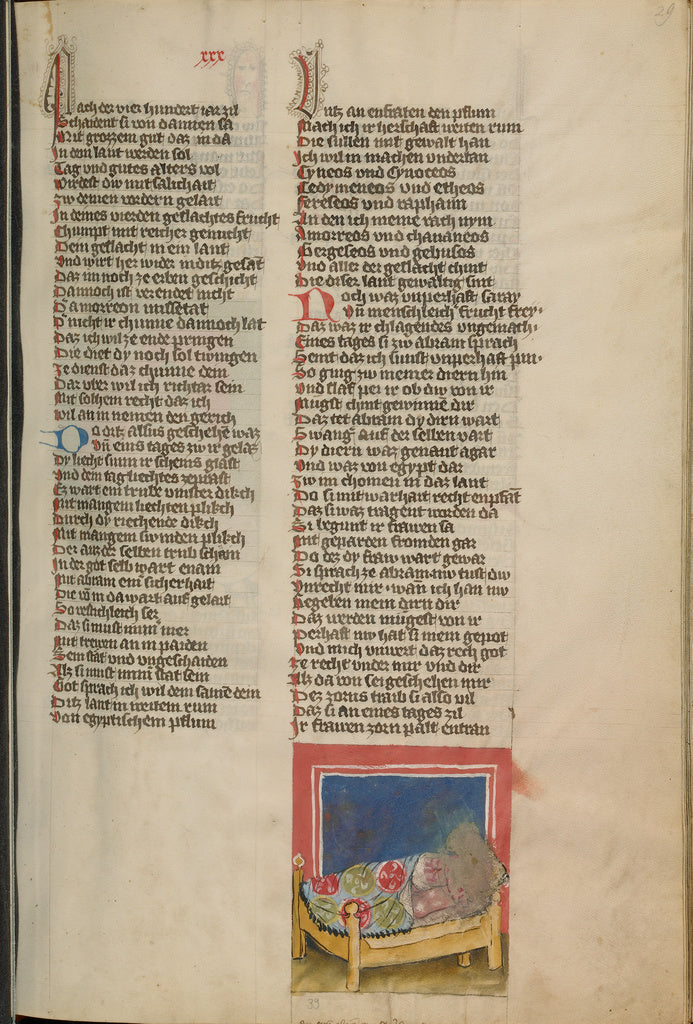 29
xxx
Nach der vier hundert iar zil
Schaident si von dannen sa
Mit grozzem gut daz in da
In dem lant werden sol
Tag vnd gutes alters vol
Wirdest dw mit salichait
Zw deinen vordern gelait
In deines vierden geslachtes frucht
Chumpt mit reicher genucht
Dem geslacht in ein lant
Vnd wirt her wider in ditz gesant
Daz im noch ze erben geschicht
Dannoch ist verendet nicht
D amorreon missetat
D nicht ir chunne dannoch lat
Daz ich wil ze ende pringen
Die diet dy noch sol twingen
Ze dienst daz chunne dein
Dar vber wil ich richtar sein
Mit solhem recht daz ich
Wil an in nemen den gerich
Do ditz allus geschehe waz
Vn̄ eins tages zw ir gelaz
Dy liecht sunn ir scheins glast
Vnd dem tag liechtes geprast
Ez wart ein trube vinster dikch
Mit mangem liechten plikch
Durch dy riechende dikch
Mit mangem swinden plikch
Der auz der selben trub schain
In der got selb wart enain
Mit abram ein sicherhait
Die vō im da wart auf gelait
So vestichleich ser
Daz si must immˀ mer
Mit trewen an in paiden
Sein stat vnd vngeschaiden
Alz si must immˀ stat sein
Got sprach ich wil dem samē dein
Ditz lant in weitem rum
Von egyptischem pflum
Vntz an eufraten den pflum
Mach ich ir herschaft weiten rum
Die sullen mit gewalt han
Ich wil in machen vndertan
Cyneos vnd Cynoceos
Cedymeneos vnd etheos
Fereseos vnd raphaim
An den ich meine rach nym
Amorreos vnd chananeos
Gergeseos vnd gebuseos
Vnd aller der geslacht chint
Die diser lant gewaltig sint
Noch waz vnperhaft saray
Vn̄ menschleich frucht frey
Daz waz ir chlagendes vngemach
Eines tages si zw abram sprach
Seint daz ich sunst vnperhaft pin
So ging zw meiner diern hin
Vnd slaf pei ir ob dw von ir
Mugst chint gewinnē dir
Daz tet abram dy dirn wart
Swangˀ auf der selben vart
Dy diern waz genant agar
Vnd waz von egypt dar
Zw im chomen in daz lant
Do si mit warhait recht enpfāt
Daz si waz tragent worden da
Si begunt ir frawen sa
Mit geparden fromden gar
Do dez dy fraw wart gewar
Si sprach ze abram nw tust dw
Vnrecht mir wan ich han nw
Gegeben mein dirn dir
Daz werden mugest von ir
Perhaft nw hat si mein gepot
Vnd mich vnwert daz rech got
Ze recht vnder mir vnd dir
Alz da von sei geschehen mir
Dez zorns traib si also vil
Daz si an eines tages zil
Ir frawen zorn palt entran
33